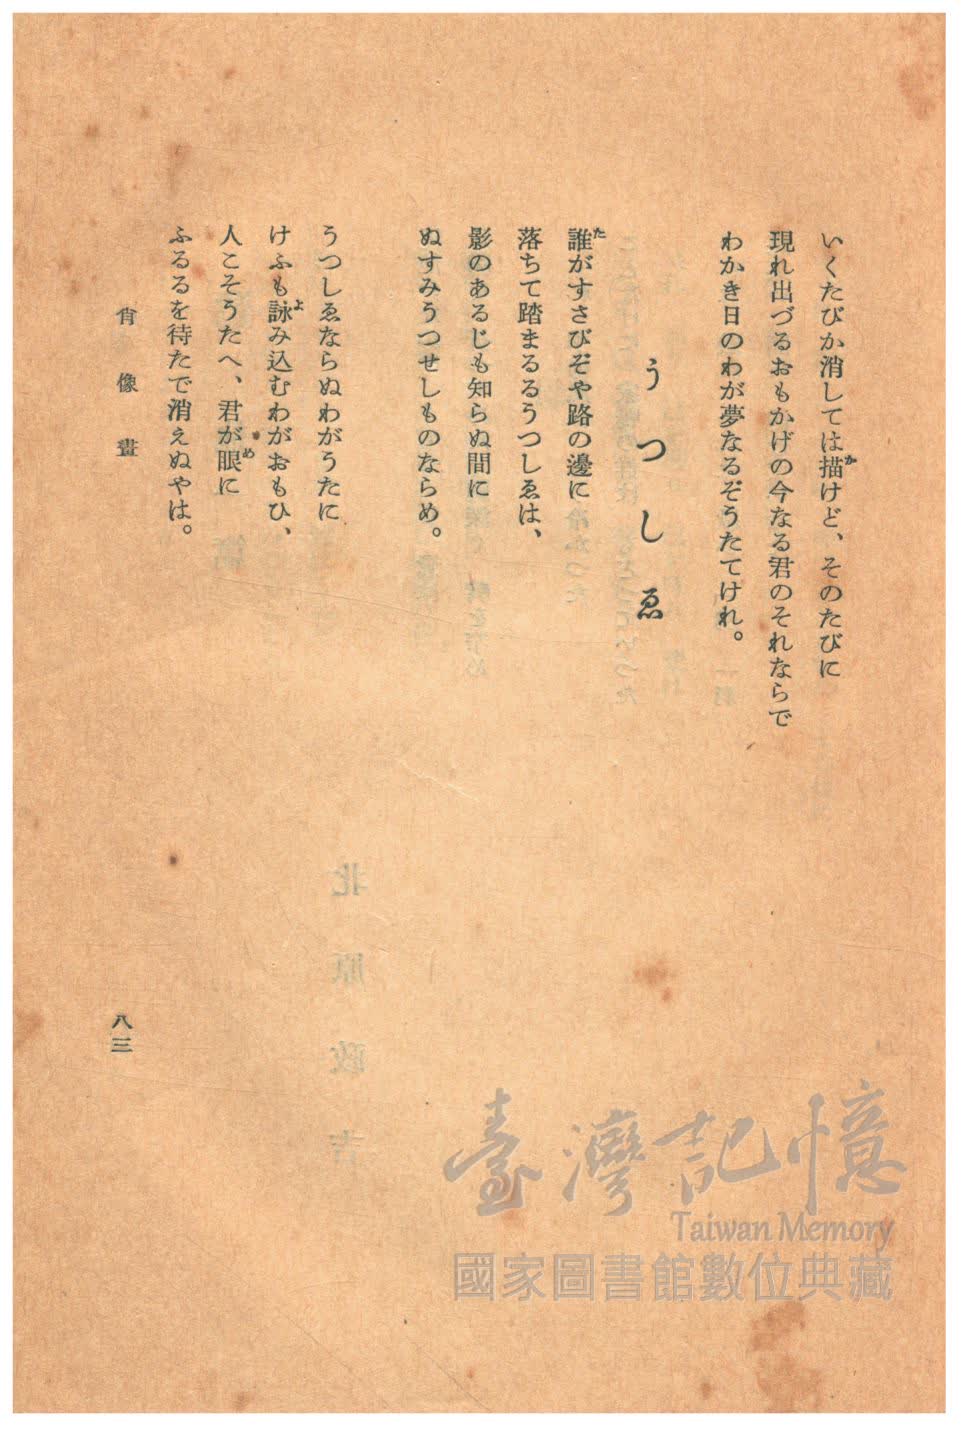 いくたびか消しては描けど、そのたびに
現れ出づるおもかげの今なる君のそれならで
わかき日のわが夢なるぞうたてけれ。
うつしゑ
誰がすさびぞや路の邊に
落ちて踏まるるうつしゑは、
影のあるじも知らぬ間に
ぬすみうつせしものならめ。
うつしゑならぬわがうたに
けふも詠み込むわがおもひ、
人こそうたへ、君が眼に
ふるるを待たで消えぬやは。
肖像畫
八三
臺灣記憶
Taiwan Memory
國家圖書館數位典藏